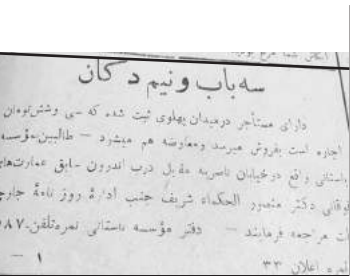 سه باب و نیم دکان
دارای مستأجر در میدان پهلوی ثبت شده که سی و شش تومان
اجاره است بفروش میرسد و معاوضه هم میشود — طالبین بمؤسسه
باستانی واقع در خیابان ناصریه مقابل درب اندرون سابق عمارتهای
فوقانی دکتر منصور الحکماء شریف جنب ادارۀ روزنامۀ
مراجعه فرمایند — دفتر مؤسسه باستانی نمره تلفن
نمره اعلان ۳۳ ۱ —